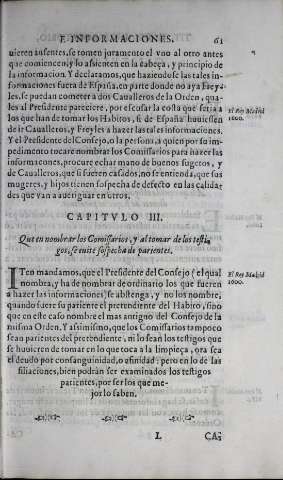 E INFORMACIONES. 61
uieren ausentes, se tomen juramento el vno al otro antes
que comiencen, y lo assienten en la cabeça, y principio de
la informacion. Y declaramos, que haziendose las tales in-
formaciones fuera de España, en parte donde no aya Freyа-
les, se puedan cometer a dos Caualleros de la Orden, qua-
les al Presidente pareciere, por escusar la costa que seria a
los que han de tomar los Habitos, si de España huuiessen
de ir Caualleros, y Freyles a hazer las tales informaciones.
Y el Presidente del Consejo, o la persona, a quien por su im-
pedimento tocare nombrar los Comissarios para hazer las
informaciones, procure echar mano de buenos sugetos, y
de Caualleros, que si fueren casados, no se entienda, que sus
mugeres, y hijos tienen sospecha de defecto en las calidas
des que van a aueriguar en otros.
El Rey Madrid
1600.
CAPITVLO III.
Que en nombrar los Comissarios, y al tomar de los testi-
gos, se euite sospecha de parientes.
ITen mandamos, que el Presidente del Consejo (el qual
nombra, y ha de nombrar de ordinario los que fueren
a hazer las informaciones) se abstenga, y no los nombre,
quando fuere su pariente el pretendiente del Habito, sino
que en este caso nombre el mas antigno del Consejo de la
misma Orden. Y assimismo, que los Comissarios tampoco
sean parientes del pretendiente, ni lo sean los testigos que
se huuieren de tomar en lo que toca a la limpieça, ora sea
el deudo por consanguinidad, o afinidad: pero en lo de las
filiaciones, bien podràn ser examinados los testigos
parientes, por ser los que me-
jor lo saben.
El Rey Madrid
1600.
L CA-